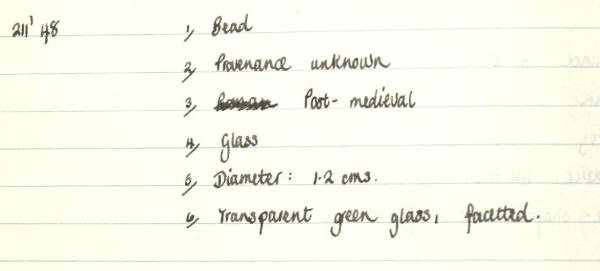 211' 48 1, Bead
2, Provenance unknown
3, Roman Post-medieval
4, Glass
5, Diameter: 1·2 cms.
6, Transparent green glass, facetted.